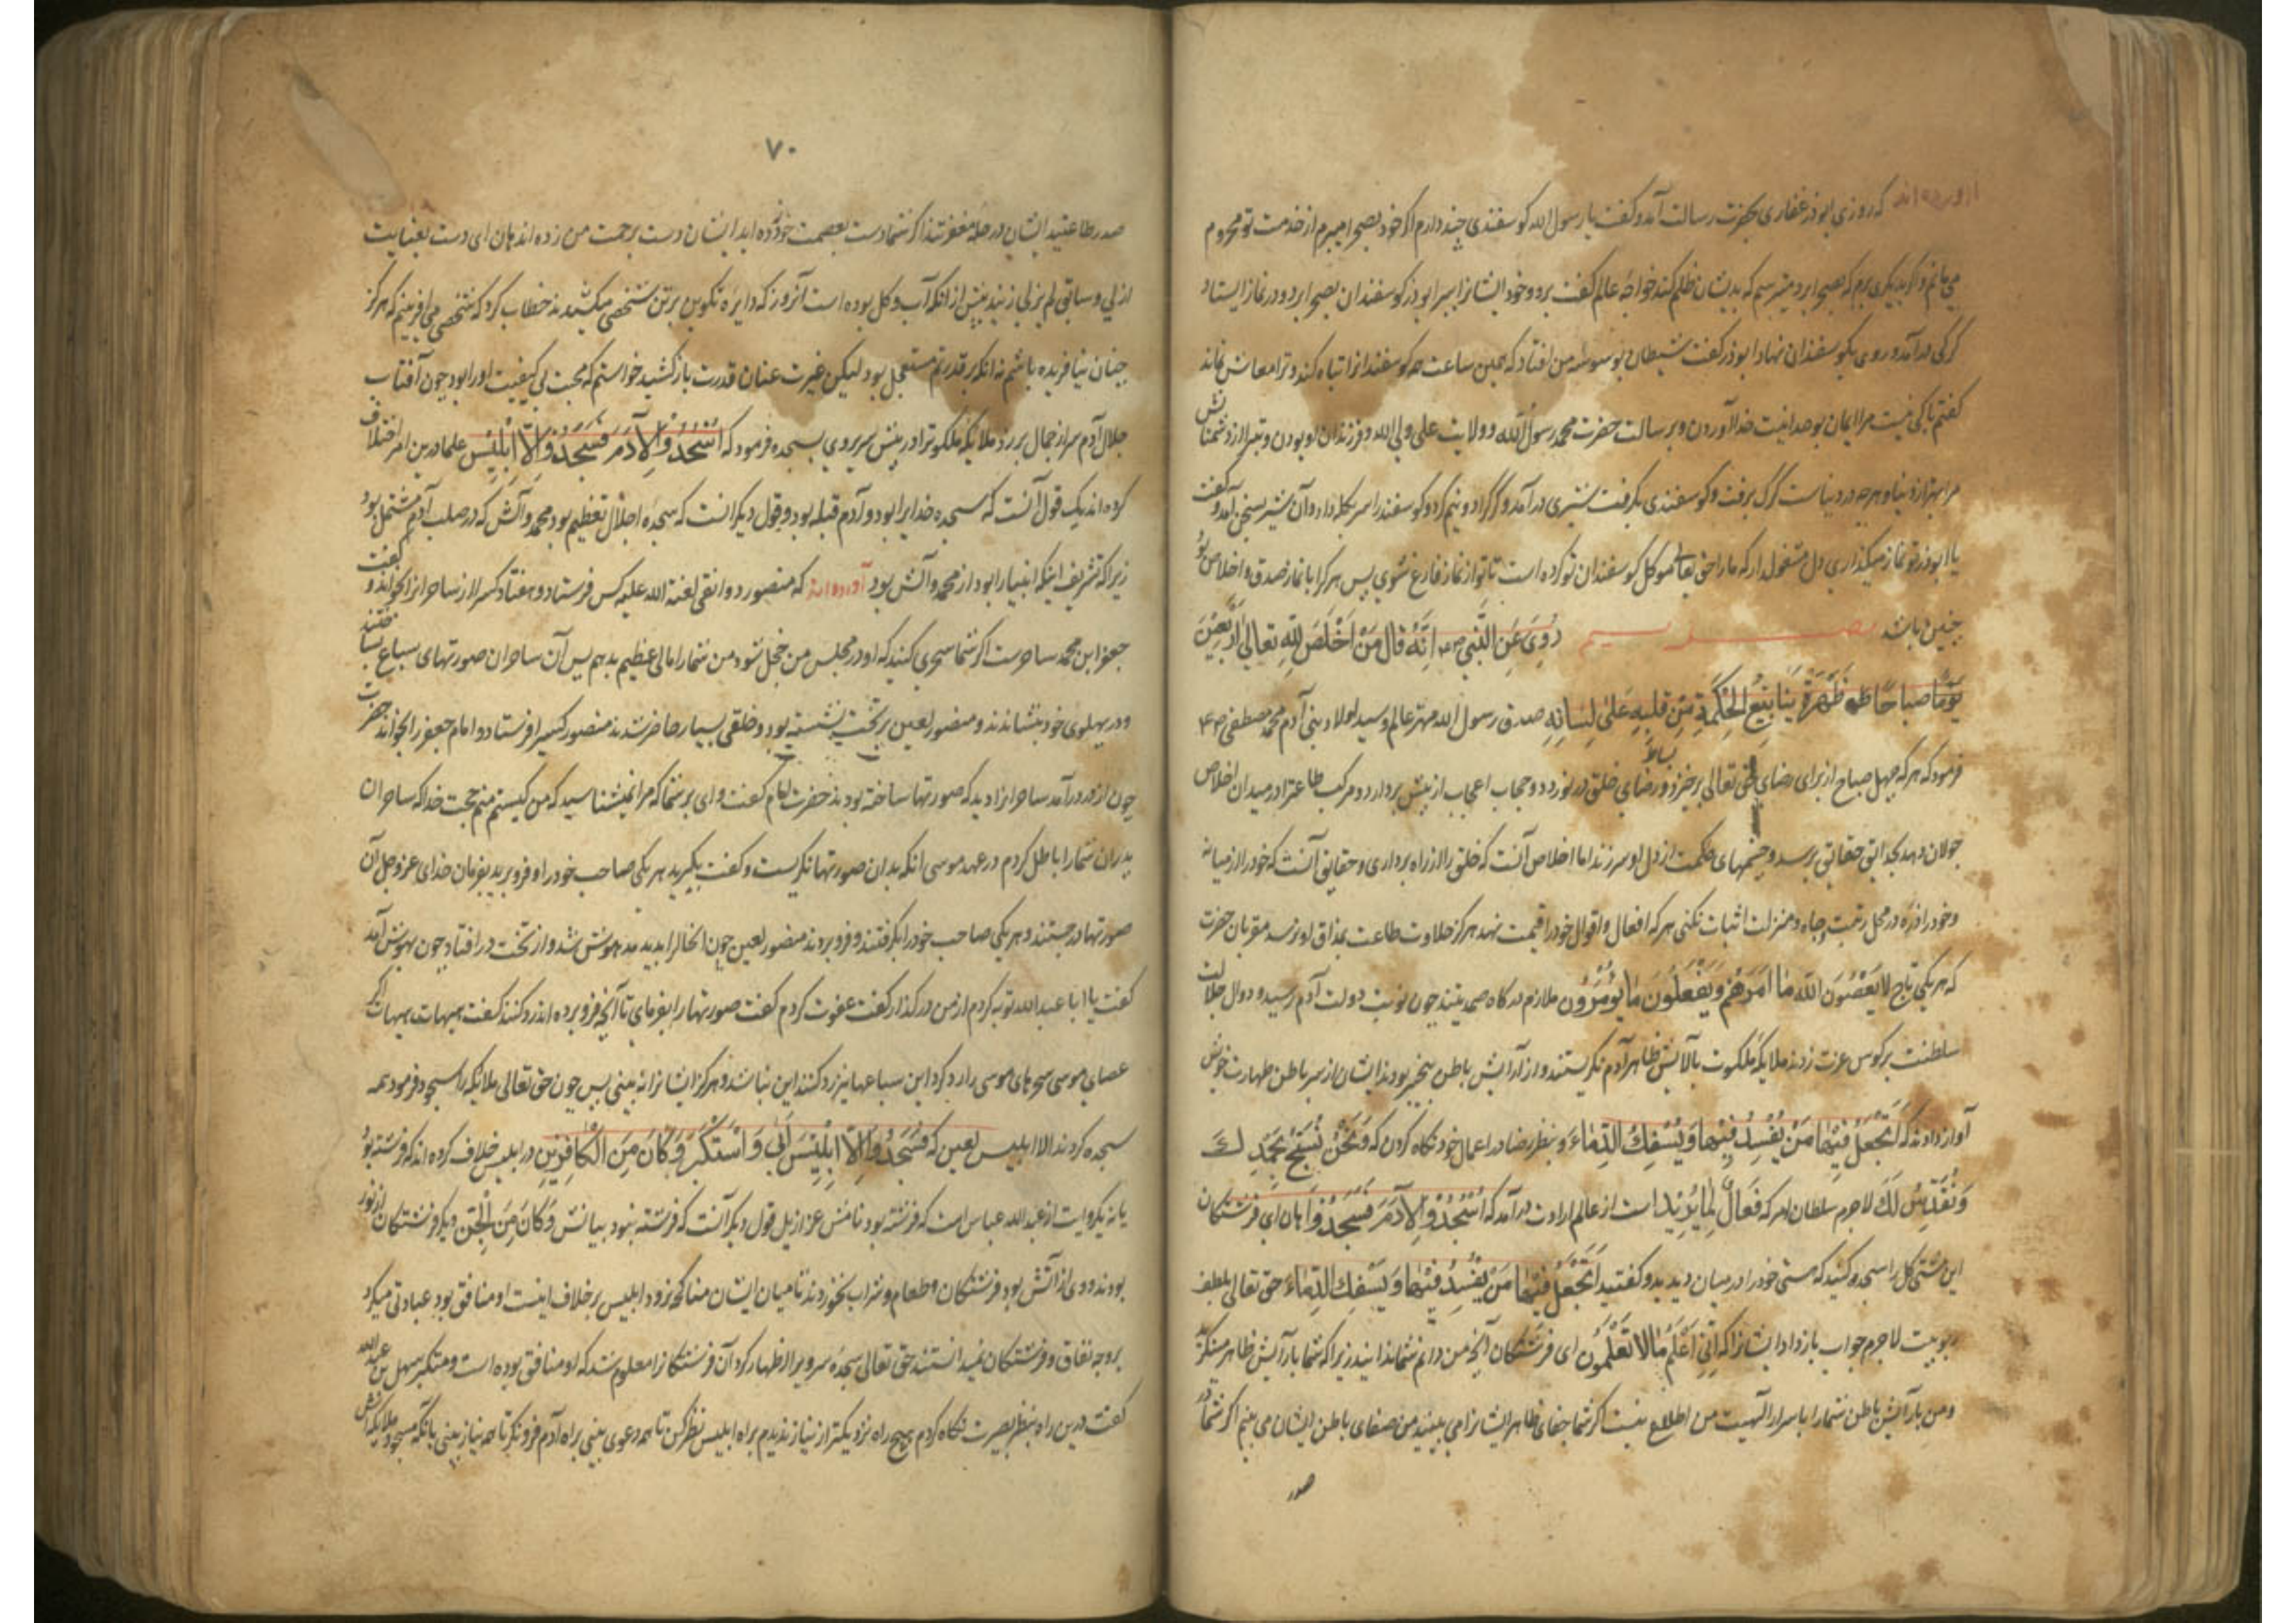 آورده‌اند که روزی ابوذر غفاری بحضرت رسالت آمد و گفت یا رسول الله گوسفندی چند دارم اگر خود بصحرا میبرم از خدمت تو محروم
می مانم و اگر بدیگری برم که بصحرا برد میترسم که بدیشان ظلم کند خواجهٔ عالم گفت برو و خود ایشانرا ببر ابوذر گوسفندان بصحرا برد و در نماز ایستاد
گرگی درآمد و روی بگوسفندان نهاد ابوذر گفت شیطان بوسوسه من افتاد که همین ساعت همه گوسفندانرا تباه کند و ترا معاش نماند
گفتم باکی نیست مرا ایمان بوحدانیت خدا آوردن و برسالت حضرت محمد رسول الله و ولایت علی ولی الله و فرزندان او بودن و تبرا از دشمنانش
مرا بهتر از دنیا و هرچه در دنیاست گرگ برفت و گوسفندی بگرفت شیری درآمد و گرگ را دو نیم کرد و گوسفند را سر بگله داد و آن شیر بسخن آمد و گفت
یا ابوذر تو نماز میگذاری دل مشغول مدار که ما را حق تعالی موکل گوسفندان تو کرده است تا تو از نماز فارغ شوی پس هر کرا با نماز صدق و اخلاص بود
چنین باشد رُوِیَ عَنِ النَّبِی ص م اِنَّهُ قالَ مَنْ اَخْلَصَ لِلّهِ تعالی اَرْبَعِیْنَ
یَوْمًا صباحًا ظَهَرَتْ یَنابِیْعُ الحِکْمَةِ مِنْ قَلْبِهِ عَلی لِسانِهِ صدق رسول الله مهتر عالم و سید اولاد بنی آدم محمد مصطفی ص م
فرمود که هر که چهل صباح از برای رضای حق تعالی برخیزد و بساط رضای خلق در نوردد و حجاب اعجاب از پیش بردارد و مرکب طاعت را در میدان اخلاص
جولان دهد بحدایق حقایق برسد و چشمهای حکمت از دل او سر زند اما اخلاص آنست که خلق را از راه برداری و حقایق آنست که خود را از میانه
و خود را ذره در محل رتبت و جاه و منزلت اثبات نکنی هر که افعال و اقوال خود را قیمت نهد هرگز حلاوت طاعت بمذاق او نرسد مقربان حضرت
که هر یکی تاج لا یَعْصُونَ اللّهَ ما اَمَرَهُمْ وَیَفْعَلُونَ ما یُؤمَرُون ملازم درگاه صمدیتند چون نوبت دولت آدم رسید و دوال جلالت
سلطنت بر کوس عزت زدند ملایکه ملکوت بآلایش ظاهر آدم نگریستند و از آرایش باطن بیخبر بودند ایشان از سر باطن طهارت خویش
آواز دادند که اَتَجْعَلُ فِیْها مَنْ یُفْسِدُ فِیْها وَیَسْفِکُ الدِّماءَ و بنظر رضا در اعمال خود نگاه کردن که وَنَحْنُ نُسَبِّحُ بِحَمْدِکَ
وَنُقَدِّسُ لَکَ لاجرم سلطان امر که فَعّالٌ لِما یُرِیْد است از عالم ارادت درآمد که اُسْجُدُوْا لِآدَمَ فَسَجَدُوْا هان ای فرشتگان
این مشتی گل را سجده کنید که هستی خود را در میان دیدید و گفتید اَتَجْعَلُ فِیْها مَنْ یُفْسِدُ فِیْها وَیَسْفِکُ الدِّماءَ حق تعالی بلطف
ربوبیت لاجرم جواب باز داد ایشانرا که اِنِّی اَعْلَمُ ما لا تَعْلَمُونَ ای فرشتگان آنچه من دانم شما ندانید زیرا که شما بآرایش ظاهر مینگرید
و من بآرایش باطن شما را با سرار الهیت من اطلاع نیست اگر شما جفای ظاهر ایشانرا می بینید من صفای باطن ایشان می بینم اگر شما در
صدر
۷۰
صدر طاعتید ایشان در حله مغفرتند اگر شما دست بعصمت خود زده اید ایشان دست برحمت من زده اند هان ای دست بعنایت
ازلی و سابقی لم یزلی زنید پیش از آنکه آب و گل بوده است آنروز که دایره تکوین بر تن شخصی میکشیدند خطاب کرد که شخصی می آفرینم که هرگز
چنان نیافریده باشم نه آنکه بر قدرتم مستعجل بود لیکن غیرت عنان قدرت باز کشید خواستم که محبت بی کیفیت او را بود چون آفتاب
جلال آدم سر از جمال برزد ملایکه ملکوترا در پیش سریر وی بسجده فرمود که اُسْجُدُوْا لِآدَمَ فَسَجَدُوْا اِلّا اِبْلِیْس علما در این امر اختلاف
کرده اند یک قول آنست که سجده خدایرا بود و آدم قبله بود و قول دیگر آنست که سجده اجلال و تعظیم بود محمد و آلش که در صلب آدم مشتمل بود
زیرا که تشریف اینکه انبیا را بود از محمد و آلش بود آورده‌اند که منصور دوانقی لعنة الله علیه کس فرستاد و هفتاد کس را از ساحرانرا بخواند و گفت
جعفر ابن محمد ساحرست اگر شما سحری کنید که او در مجلس من خجل شود من شما را مالی عظیم بدهم پس آن ساحران صورتهای سباع بساختند
و در پهلوی خود بنشاندند و منصور لعین بر تخت نشسته بود و خلقی بسیار حاضر شدند منصور کس را فرستاد و امام جعفر را بخواند حضرت
چون از در درآمد ساحرانرا دید که صورتها ساخته بودند حضرت امام گفت وای بر شما که مرا نمیشناسید که من کیستم منم حجت خدا که ساحران
پدران شما را باطل کردم در عهد موسی آنگه بدان صورتها نگریست و گفت بگیرید هر یکی صاحب خود را و فرو برید بفرمان خدای عز و جل آن
صورتها در جستند و هر یکی صاحب خود را بگرفتند و فرو بردند منصور لعین چون آنحال را بدید مدهوش شد و از تخت در افتاد چون بهوش آمد
گفت یا ابا عبدالله توبه کردم از من در گذار گفت عفوت کردم گفت صورتها را بفرمای تا آنچه فرو برده اند رد کنند گفت هیهات هیهات اگر
عصای موسی سحرهای موسی را رد کرد این سباعها نیز رد کنند این نباشد و هرگز ایشانرا نه بینی پس چون حق تعالی ملائکه را سجود فرمود همه
سجده کردند الا ابلیس لعین که فَسَجَدُوا اِلّا اِبْلِیْسَ اَبی وَاسْتَکْبَرَ وَکانَ مِنَ الْکافِرِیْنِ در ابلیس خلاف کرده اند که فرشته بود
یا نه یکروایت از عبدالله عباس است که فرشته بود نامش عزازیل قول دیگر آنست که فرشته نبود ببیانش وَکانَ مِنَ الْجِنّ دیگر فرشتگان از نور
بودند و وی از آتش بود فرشتگان طعام و شراب نخوردند تا میان ایشان مناکحه نرود ابلیس بر خلاف اینست او منافق بود عبادتی میکرد
بر وجه نفاق و فرشتگان نمیدانستند حق تعالی سجده سرویرا اظهار کرد آن فرشتگانرا معلوم شد که او منافق بوده است و متکبر سهل بن عبدالله
گفت درین راه بنظر بصیرت نگاه کردم هیچ راه نزدیکتر از نیاز ندیدم براه ابلیس نظر کن تا همه دعوی بینی براه آدم فرو نگر تا همه نیاز بینی بآنکه مسجود ملایکه